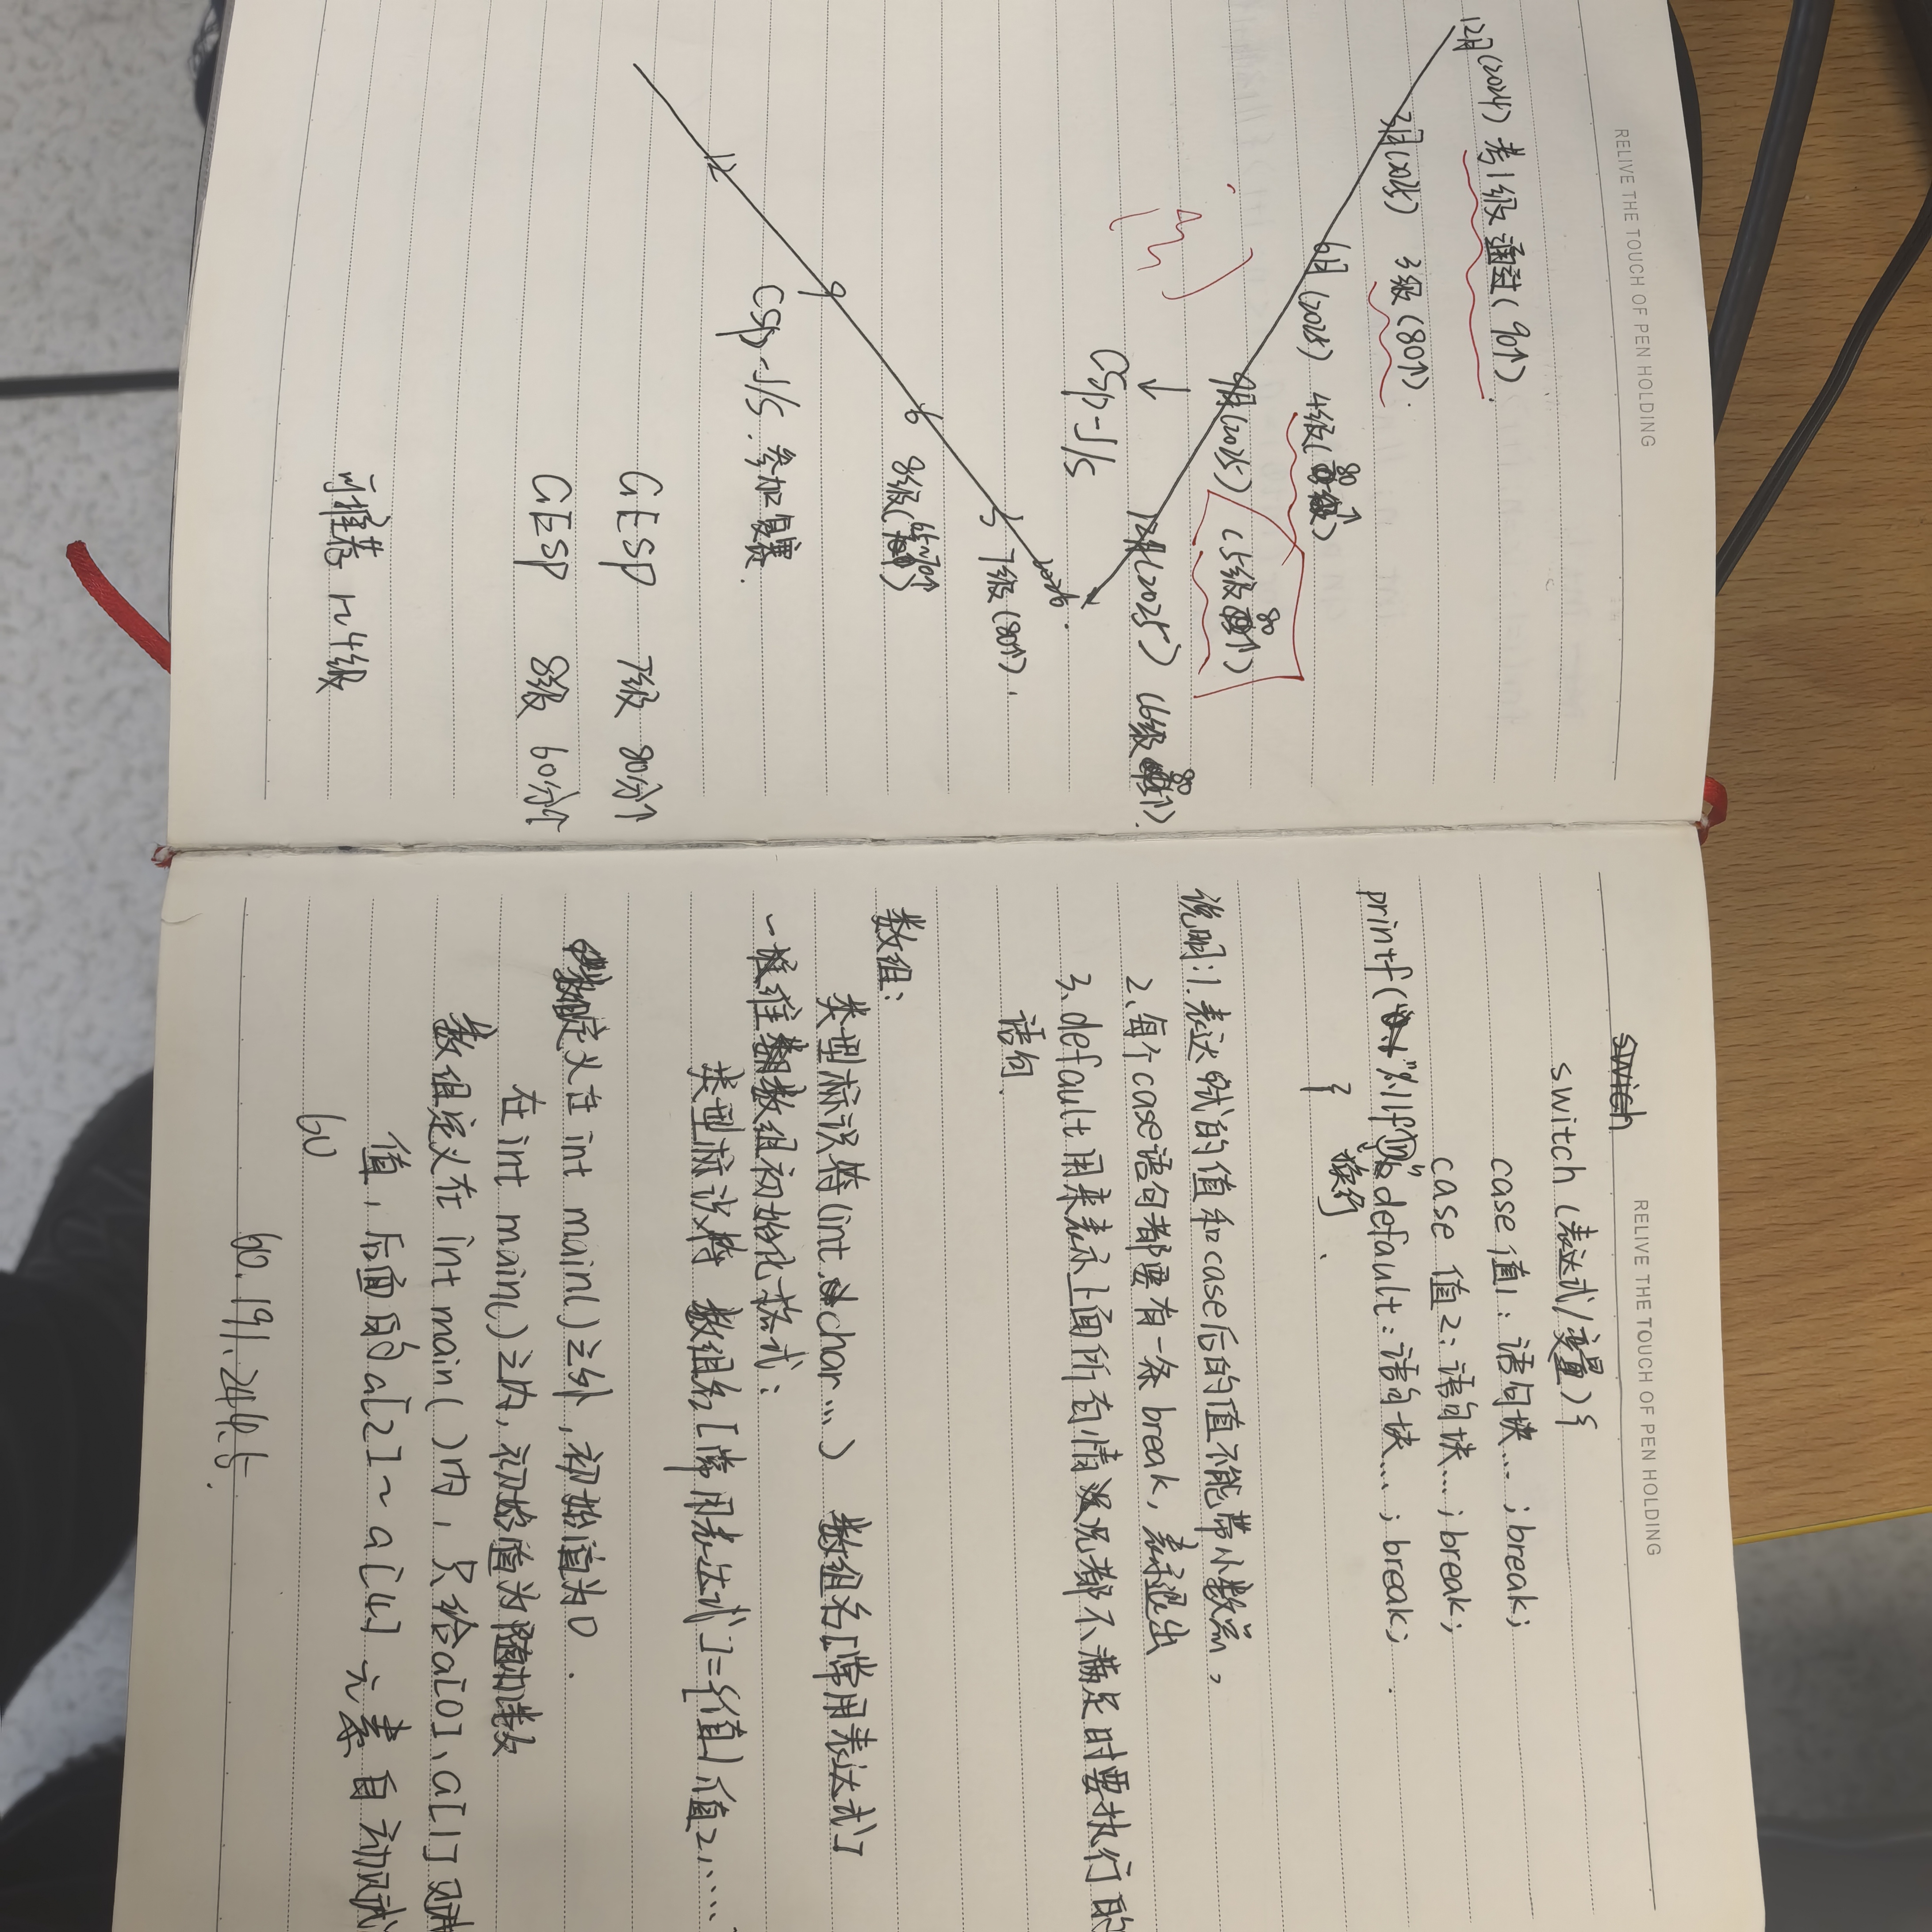 RELIVE THE TOUCH OF PEN HOLDING
12月(2024) 考1级通过(90↑)
3月(2025) 3级(80↑).
6月(2025) 4级(80↑)
9月(2025) (5级80↑)
↓
CSP-J/S
12月(2025) (6级80↑).
2026.
3 7级(80↑).
6 8级(65~70↑)
9
CSP-J/S.参加复赛.
12
GESP 7级 80分↑
GESP 8级 60分↑
可推荐 4级
RELIVE THE TOUCH OF PEN HOLDING
swich
switch(表达式/变量){
case 值1:语句块...;break;
case 值2:语句块....;break;
default:语句块....;break;
printf("%.1lf
}
换行
说明:1.表达式的值和case后的值不能带小数点,
2、每个case语句都要有一条break,表示退出
3、default用来表示上面所有情况都不满足时要执行的
语句.
数组:
类型标识符(int、char...) 数组名[常用表达式]
一维数组初始化格式:
类型标识符 数组名[常用表达式]={值1,值2,....
定义在int main()之外,初始值为0.
在int main()之内,初始值为随机数
数组定义在int main()内,只给a[0]、a[1]赋
值,后面的a[2]~a[4]元素自动赋
60
60.191.246.5.